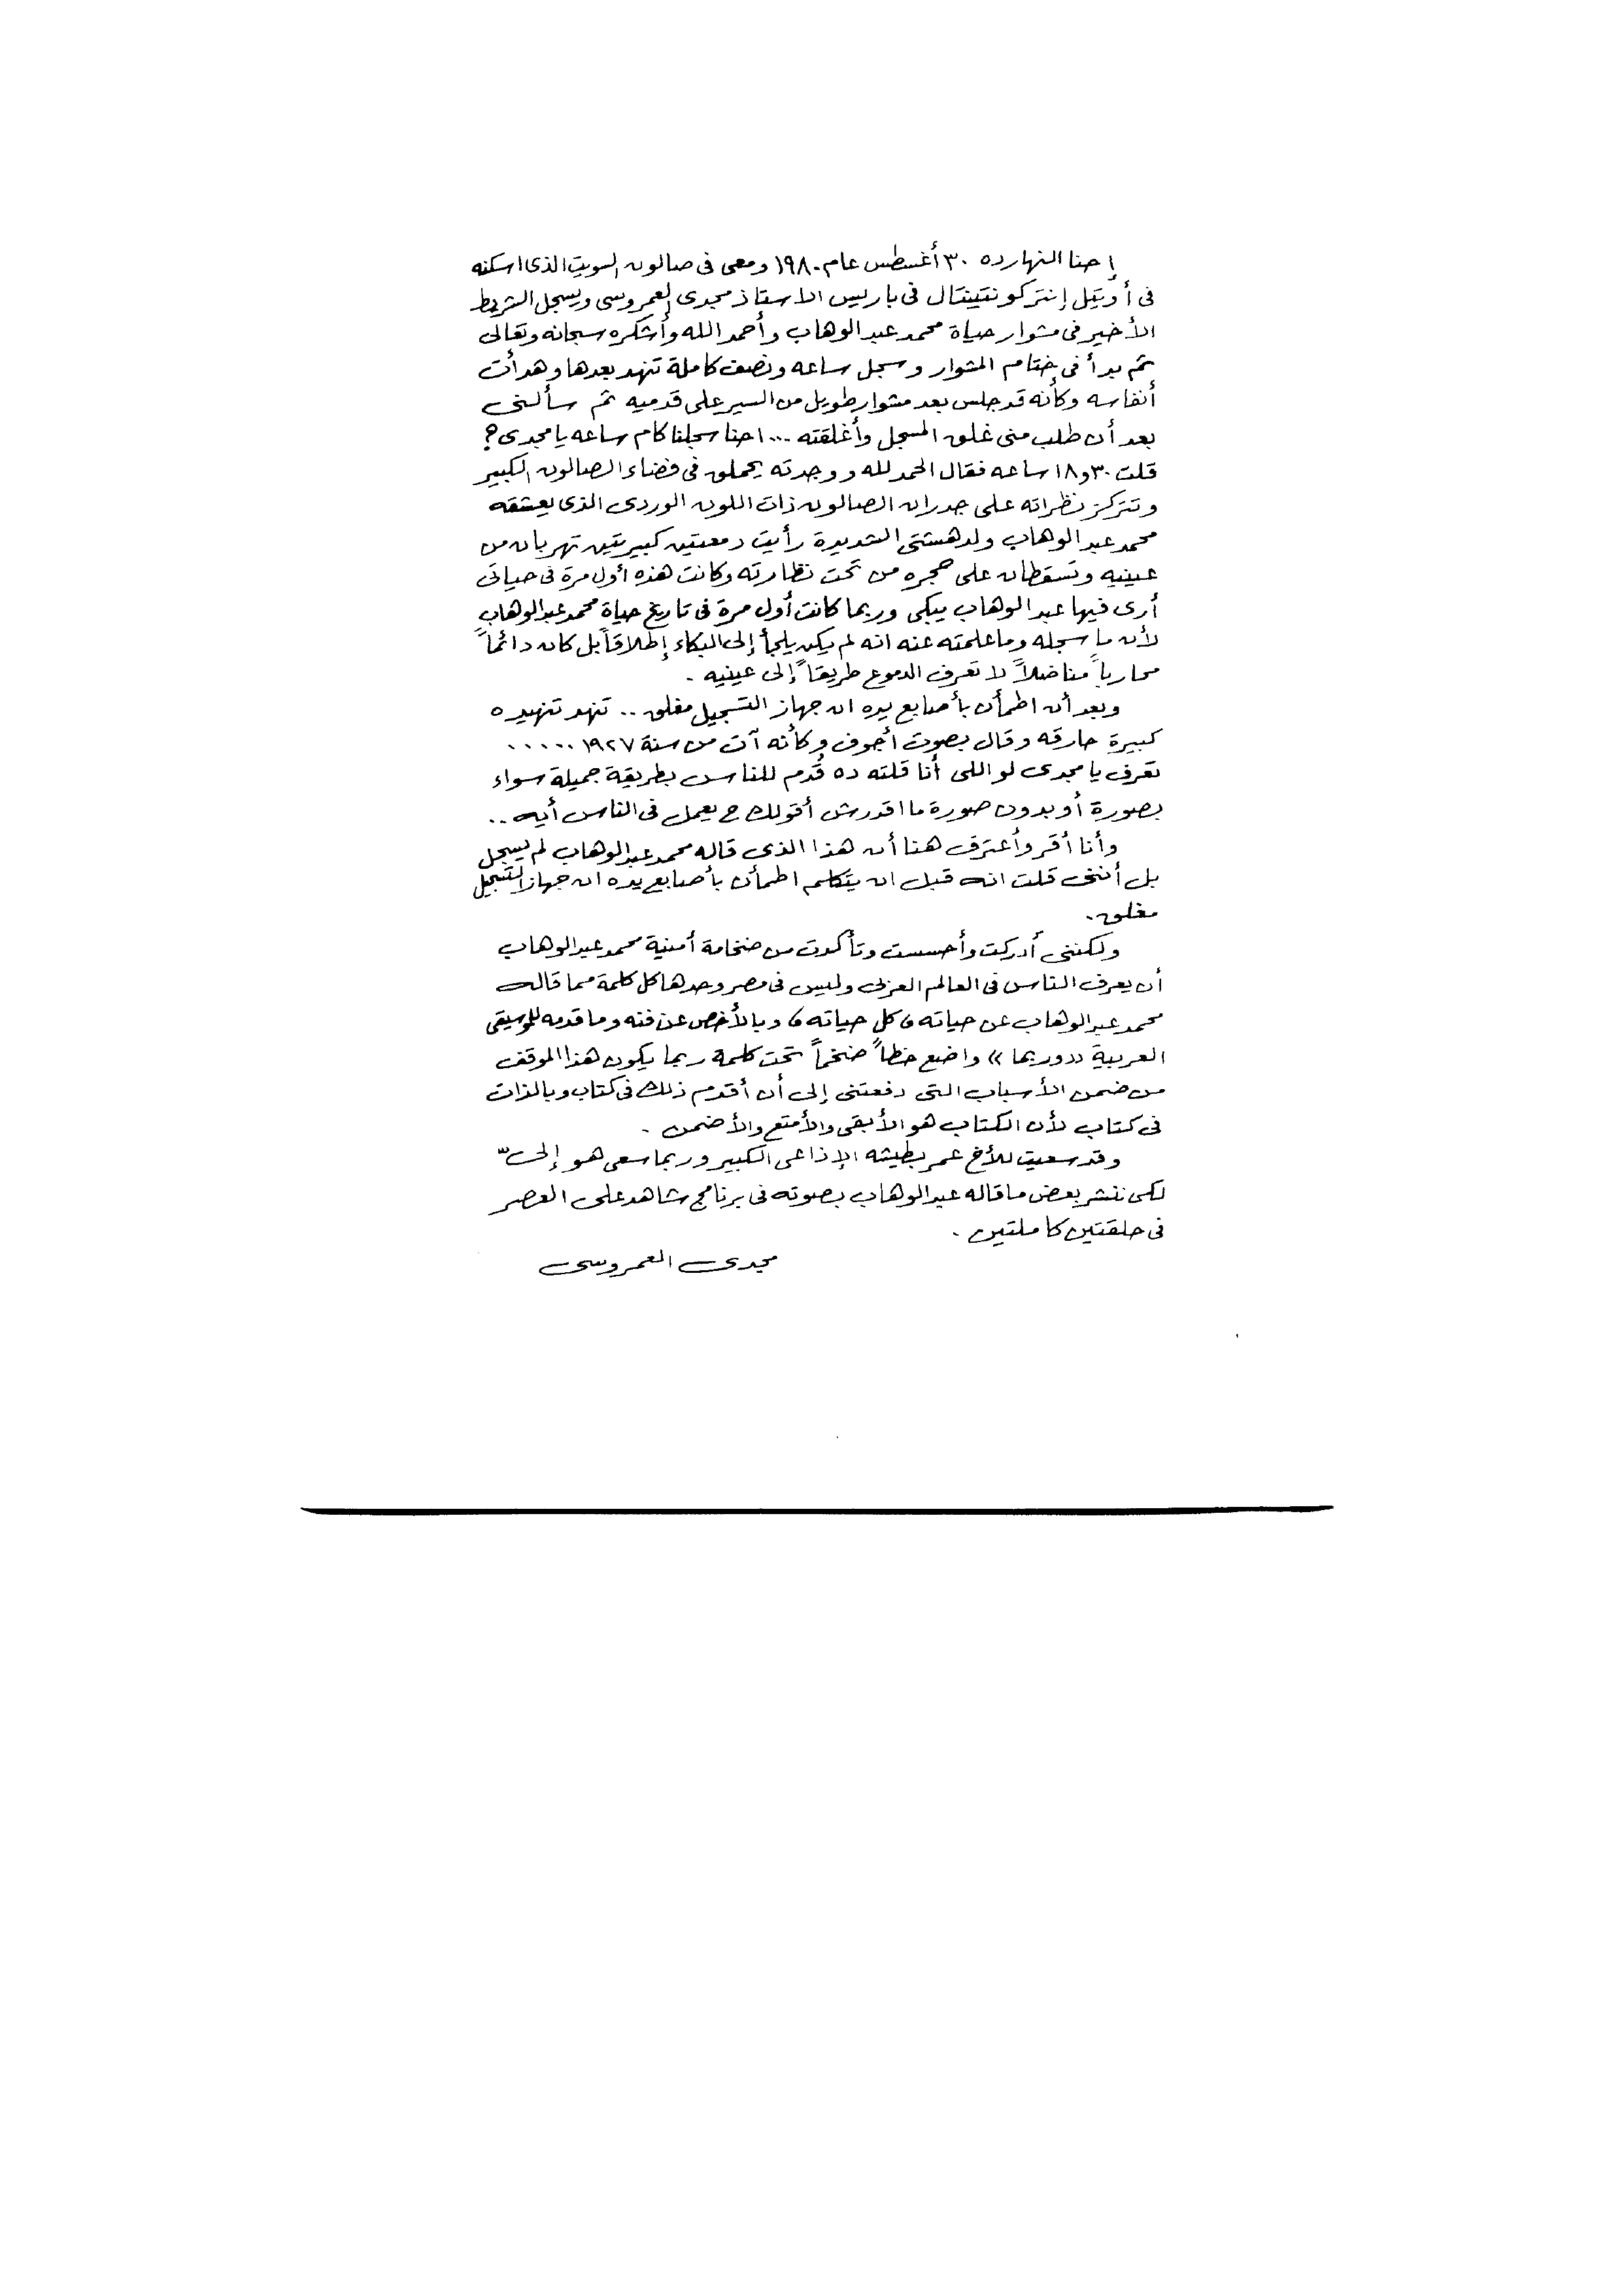 إحنا النهارده ٣٠ أغسطس عام ١٩٨٠ ومعى فى صالون السويت الذى اسكنه
فى أوتيل إنتركونتيننتال فى باريس الاستاذ مجدى العمروسى ويسجل الشريط
الأخير فى مشوار حياة محمد عبد الوهاب وأحمد الله وأشكره سبحانه وتعالى
ثم بدأ فى ختام المشوار وسجل ساعه ونصف كاملة تنهد بعدها وهدأت
أنفاسه وكأنه قد جلس بعد مشوار طويل من السير على قدميه ثم سألنى
بعد أن طلب منى غلق المسجل وأغلقته ... احنا سجلنا كام ساعه يا مجدى ؟
قلت ٣٠و١٨ ساعه فقال الحمد لله ووجدته يحملق فى فضاء الصالون الكبير
وتتركز نظراته على جدران الصالون ذات اللون الوردى الذى يعشقه
محمد عبد الوهاب ولدهشتى الشديدة رأيت دمعتين كبيرتين تهربان من
عينيه وتسقطان على حجره من تحت نظارته وكانت هذه أول مرة فى حياتى
أرى فيها عبد الوهاب يبكى وربما كانت أول مرة فى تاريخ حياة محمد عبد الوهاب
لأن ما سجله وما علمته عنه انه لم يكن يلجأ إلى البكاء إطلاقاً بل كان دائماً
محارباً مناضلاً لا تعرف الدموع طريقاً إلى عينيه .
وبعد أن اطمأن بأصابع يده ان جهاز التسجيل مغلق .. تنهد تنهيده
كبيرة حارقه وقال بصوت أجوف وكأنه آت من سنة ١٩٢٧ .....
تعرف يا مجدى لو اللى أنا قلته ده قُدم للناس بطريقة جميلة سواء
بصورة أو بدون صورة ما اقدرش أقولك ح يعمل فى الناس أيه ..
وأنا أقر وأعترف هنا أن هذا الذى قاله محمد عبد الوهاب لم يسجل
بل أننى قلت انه قبل ان يتكلم اطمأن بأصابع يده ان جهاز التسجيل
مغلق .
ولكننى أدركت وأحسست وتأكدت من ضخامة أمنية محمد عبد الوهاب
أن يعرف الناس فى العالم العربى وليس فى مصر وحدها كل كلمة مما قاله
محمد عبد الوهاب عن حياته ، كل حياته ، وبالأخص عن فنه وما قدمه للموسيقى
العربية «وربما» واضع خطاً ضخماً تحت كلمة ربما يكون هذا الموقف
من ضمن الأسباب التى دفعتنى إلى أن أقدم ذلك فى كتاب وبالذات
فى كتاب لأن الكتاب هو الأبقى والأمتع والأضمن .
وقد سعيت للأخ عمر بطيشه الإذاعى الكبير وربما سعى هو إلىّ
لكى ننشر بعض ما قاله عبد الوهاب بصوته فى برنامج شاهد على العصر
فى حلقتين كاملتين .
مجدى العمروسى